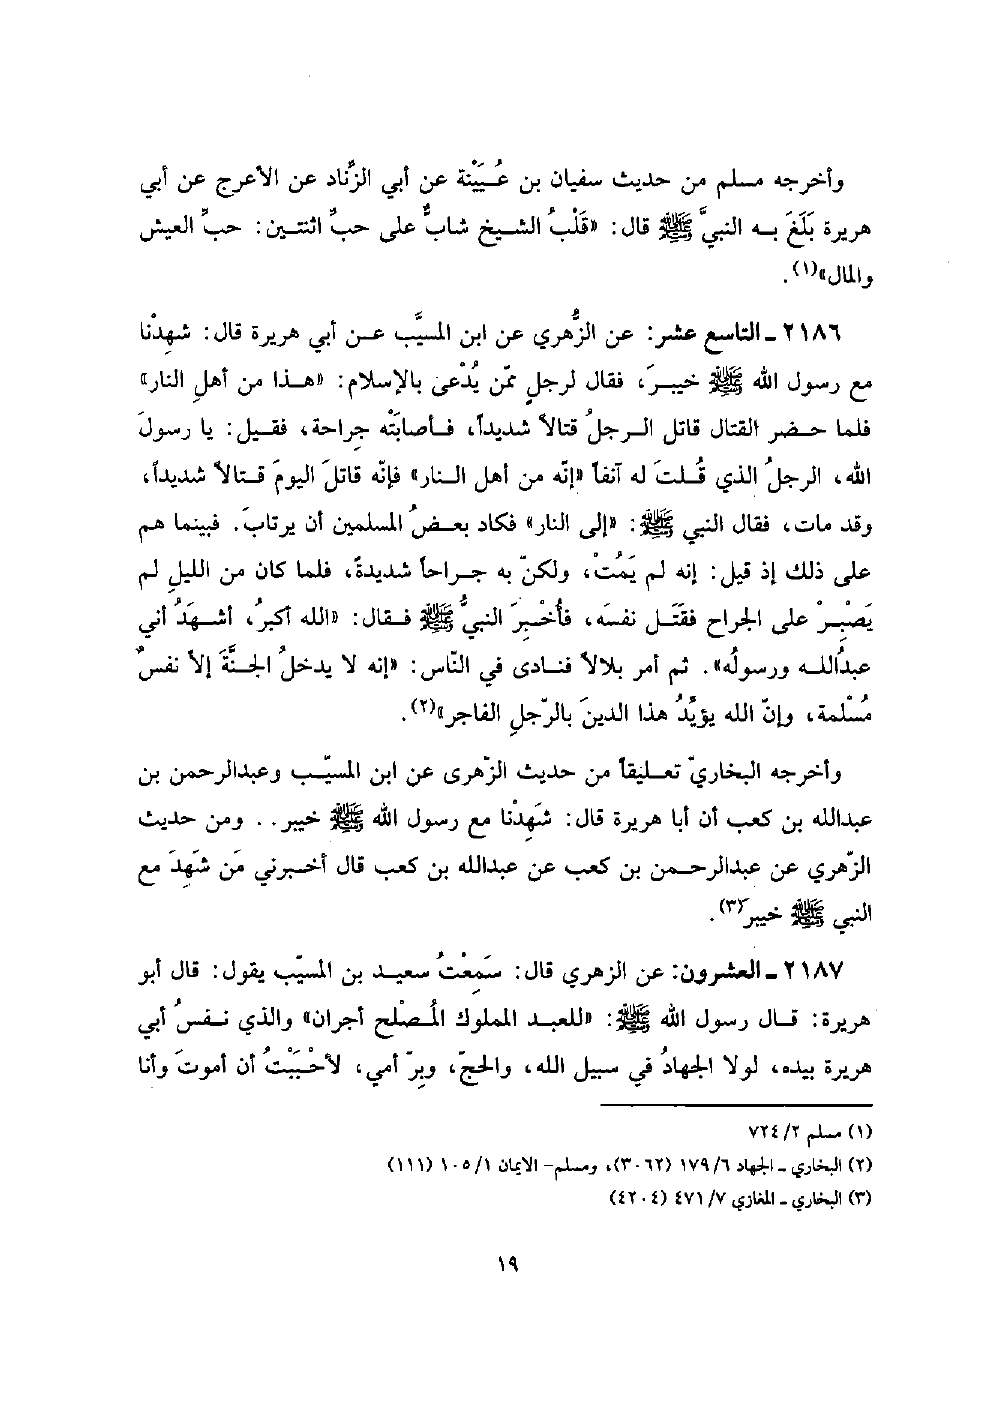 وأخرجه مسلم من حديث سفيان بن عُيَيْنة عن أبي الزِّناد عن الأعرج عن أبي
هريرة بَلَغَ به النبيَّ ﷺ قال: «قَلْبُ الشيخ شابٌّ على حبِّ اثنتين: حبِّ العيش
والمال»(١).
٢١٨٦ ـ التاسع عشر: عن الزُّهري عن ابن المسيَّب عن أبي هريرة قال: شهِدْنا
مع رسول الله ﷺ خيبرَ، فقال لرجلٍ ممّن يُدْعى بالإسلام: «هذا من أهلِ النار»
فلما حضر القتال قاتل الرجلُ قتالاً شديداً، فأصابَتْه جِراحة، فقيل: يا رسولَ
الله، الرجلُ الذي قُلتَ له آنفاً «إنّه من أهل النار» فإنّه قاتلَ اليومَ قتالاً شديداً،
وقد مات، فقال النبي ﷺ: «إلى النار» فكاد بعضُ المسلمين أن يرتابَ. فبينما هم
على ذلك إذ قيل: إنه لم يَمُتْ، ولكنّ به جراحاً شديدةً، فلما كان من الليلِ لم
يَصْبِرْ على الجراح فقَتَل نفسَه، فأُخْبِرَ النبيُّ ﷺ فقال: «الله أكبرُ، أشهَدُ أني
عبدُالله ورسولُه». ثم أمر بلالاً فنادى في النّاس: «إنه لا يدخلُ الجنَّةَ إلاّ نفسٌ
مُسْلمة، وإنّ الله يؤيِّدُ هذا الدينَ بالرّجلِ الفاجر»(٢).
وأخرجه البخاريّ تعليقاً من حديث الزّهرى عن ابن المسيّب وعبدالرحمن بن
عبدالله بن كعب أن أبا هريرة قال: شَهِدْنا مع رسول الله ﷺ خيبر.. ومن حديث
الزّهري عن عبدالرحمن بن كعب عن عبدالله بن كعب قال أخبرني مَن شَهِدَ مع
النبي ﷺ خيبر(٣).
٢١٨٧ ـ العشرون: عن الزهري قال: سَمِعْتُ سعيد بن المسيّب يقول: قال أبو
هريرة: قال رسول الله ﷺ: «للعبد المملوك المُصْلح أجران» والذي نفسُ أبي
هريرة بيده، لولا الجهادُ في سبيل الله، والحجّ، وبِرّ أمي، لأحْبَبْتُ أن أموتَ وأنا
(١) مسلم ٢/ ٧٢٤
(٢) البخاري ـ الجهاد ٦/ ١٧٩ (٣٠٦٢)، ومسلم- الايمان ١/ ١٠٥ (١١١)
(٣) البخاري ـ المغازي ٧/ ٤٧١ (٤٢٠٤)
١٩